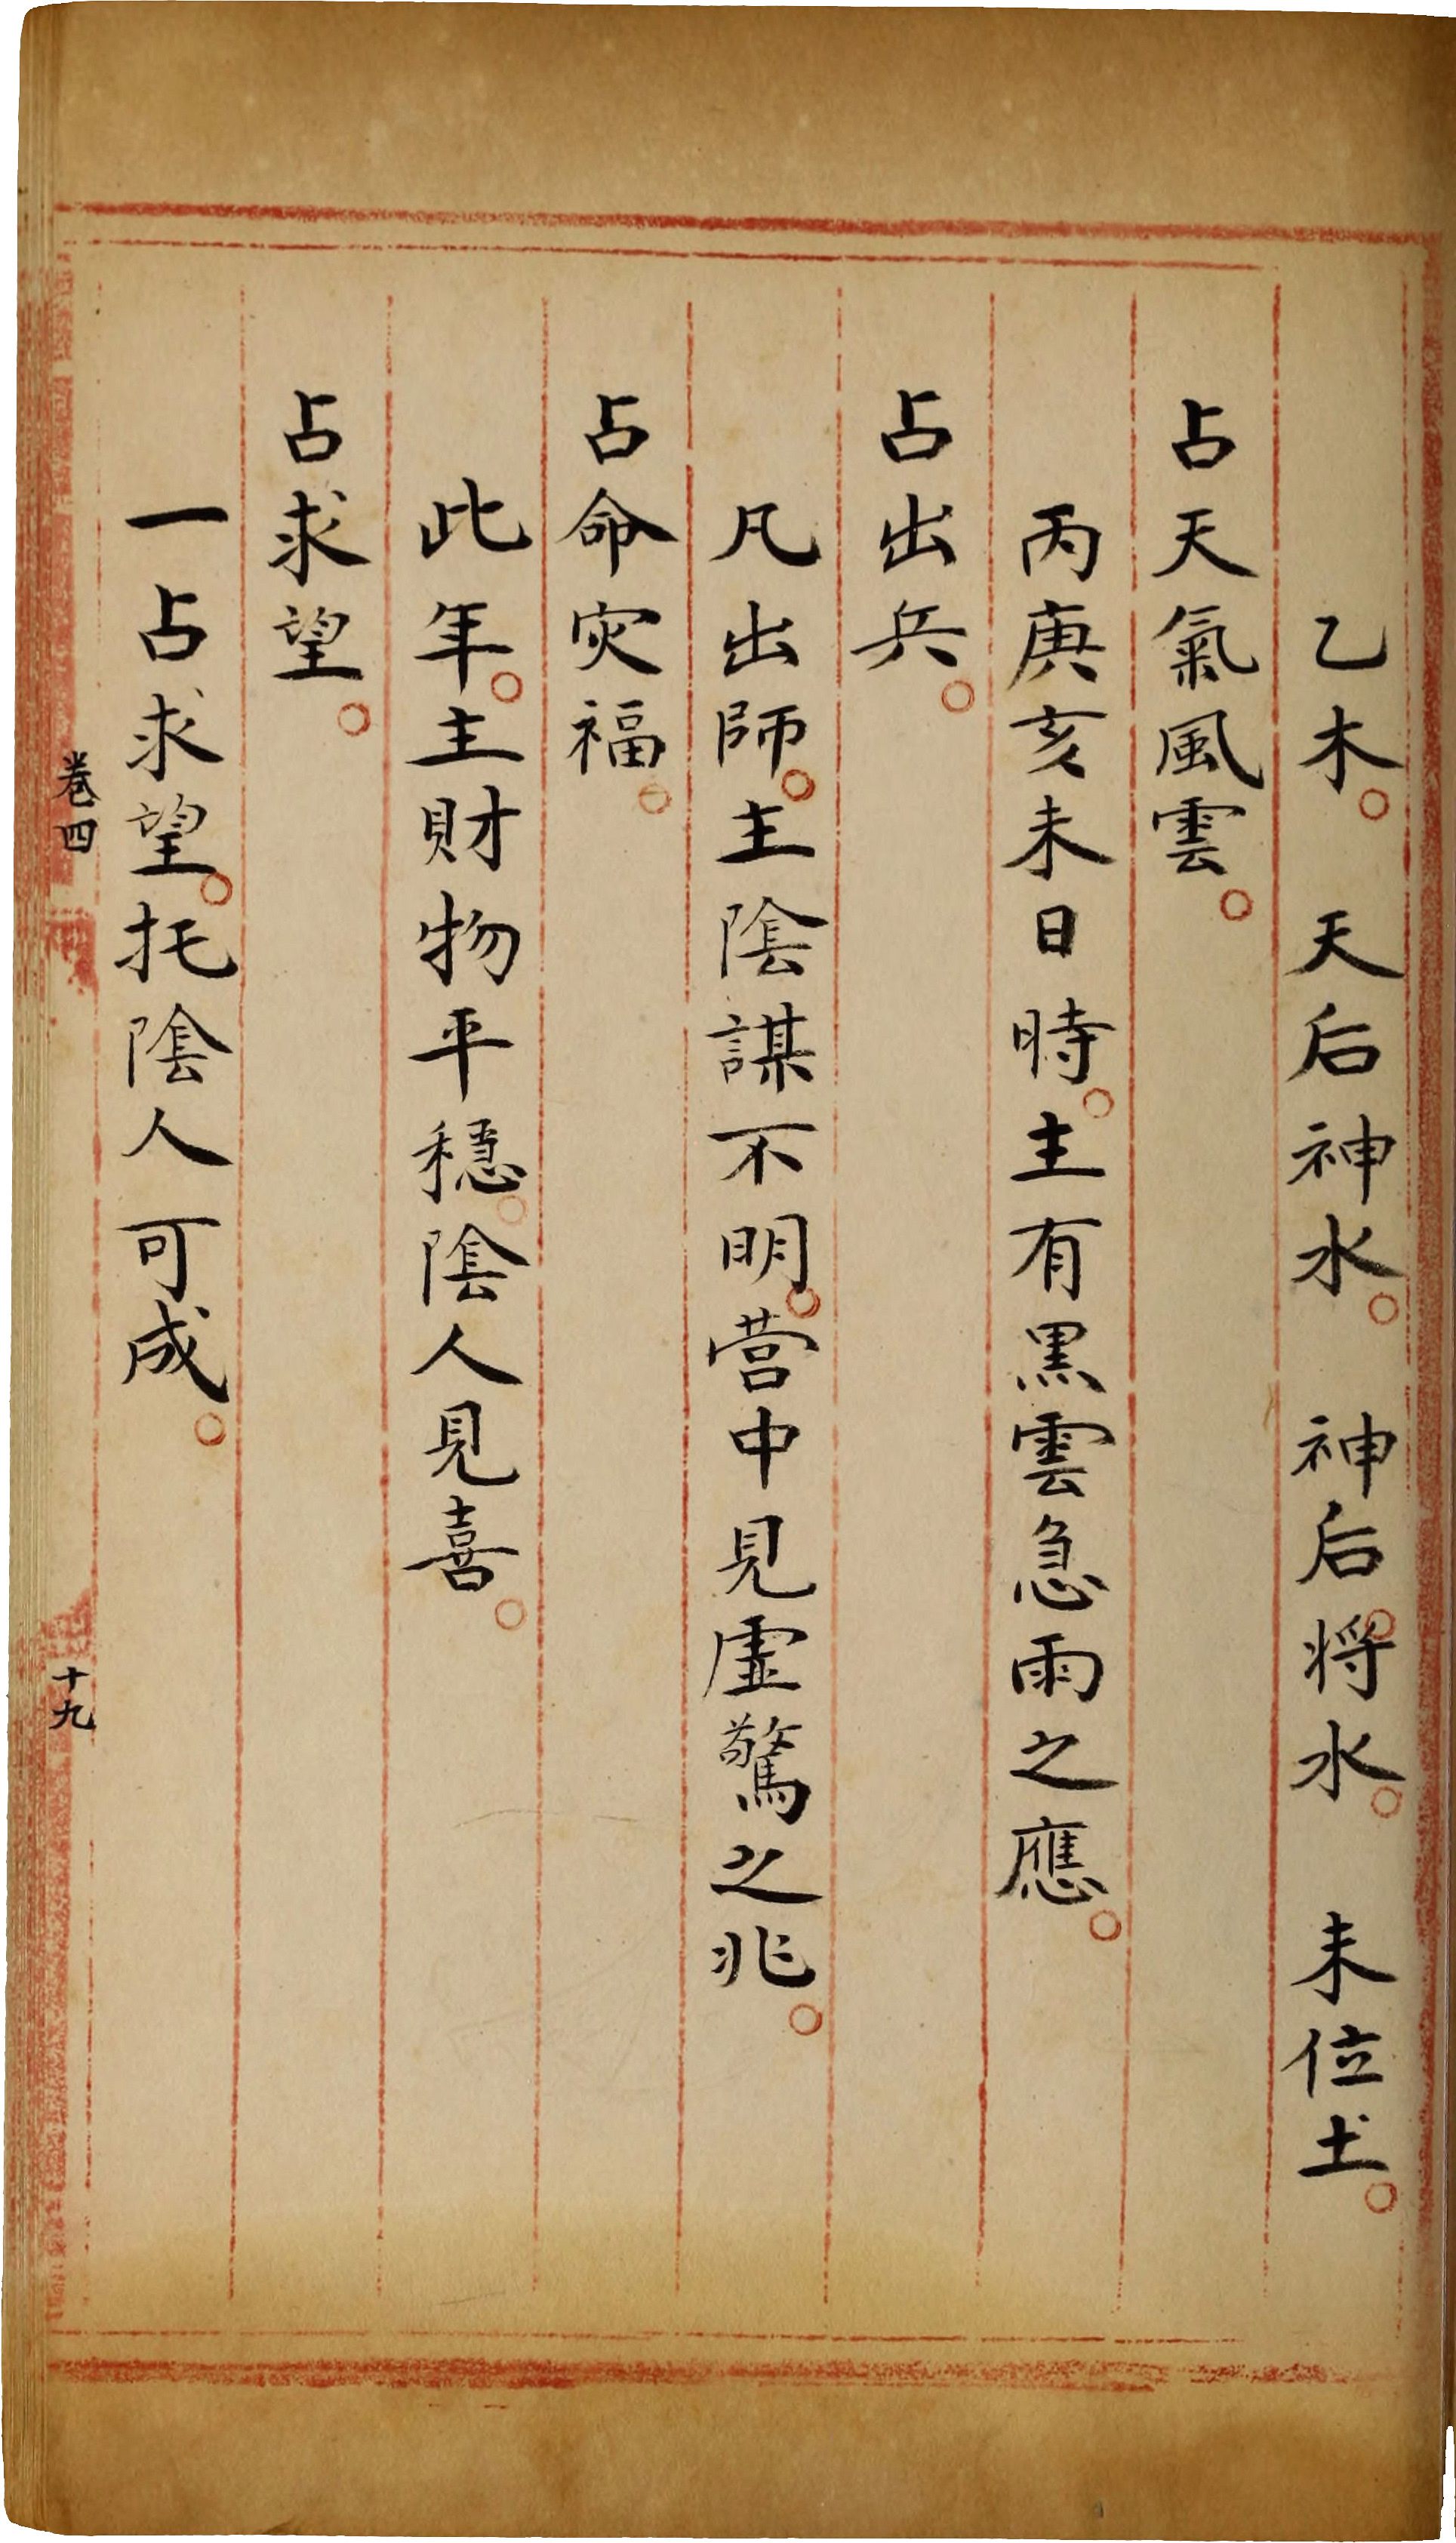 乙木。　天后神水。　神后。将水。　未位土。
占天氣風雲。
丙庚亥未日時。主有黒雲急雨之應。
占出兵。
凡出師。主陰謀不明。营中見虚驚之兆。
占命灾福。
此年。主財物平穏。陰人見喜。
占求望。
一占求望。托陰人可成。
卷四
十九